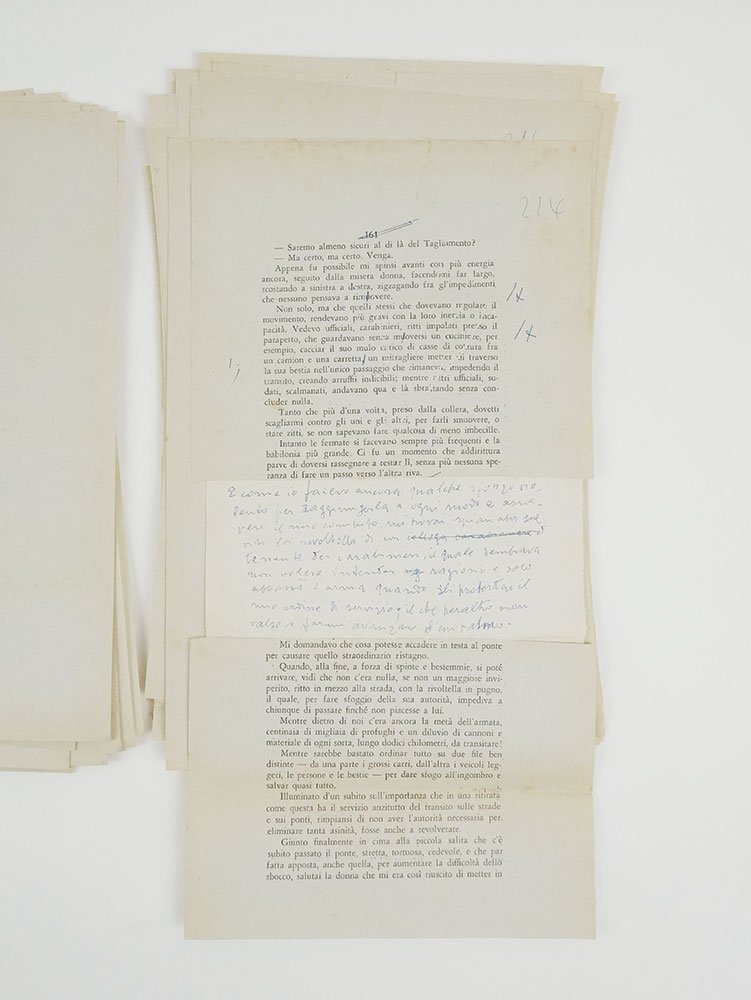 214
161
— Saremo almeno sicuri al di là del Tagliamento?
— Ma certo, ma certo. Venga.
Appena fu possibile mi spinsi avanti con più energia
ancora, seguito dalla misera donna, facendomi far largo,
scostando a sinistra a destra, zigzagando fra gl'impedimenti
che nessuno pensava a rimuovere.
Non solo, ma che quelli stessi che dovevano regolare il
movimento, rendevano più gravi con la loro inerzia o inca-
pacità. Vedevo ufficiali, carabinieri, ritti impalati presso il
parapetto, che guardavano senza muoversi un cuciniere, per
esempio, cacciar il suo mulo carico di casse di cottura fra
un camion e una carretta, un mitragliere metter di traverso
la sua bestia nell'unico passaggio che rimaneva, impedendo il
transito, creando arruffi indicibili; mentre altri ufficiali, su-
dati, scalmanati, andavano qua e là sbraitando senza con-
cluder nulla.
Tanto che più d'una volta, preso dalla collera, dovetti
scagliarmi contro gli uni e gli altri, per farli smuovere, o
stare zitti, se non sapevano fare qualcosa di meno imbecille.
Intanto le fermate si facevano sempre più frequenti e la
babilonia più grande. Ci fu un momento che addirittura
parve di doversi rassegnare a restar lì, senza più nessuna spe-
ranza di fare un passo verso l'altra riva.
E come io facevo ancora qualche sforzo vio-
lento per raggiungerla a ogni modo e assol-
vere il mio compito, mi trovai spianata sul
viso la rivoltella di un
tenente dei carabinieri, il quale sembrava
non volere intender ragione e solo
abbassò l'arma quando gli protestai il
mio ordine di servizio; il che peraltro non
valse a farmi avanzare d'un passo.
Mi domandavo che cosa potesse accadere in testa al ponte
per causare quello straordinario ristagno.
Quando, alla fine, a forza di spinte e bestemmie, si poté
arrivare, vidi che non c'era nulla, se non un maggiore invi-
perito, ritto in mezzo alla strada, con la rivoltella in pugno,
il quale, per fare sfoggio della sua autorità, impediva a
chiunque di passare finché non piacesse a lui.
Mentre dietro di noi c'era ancora la metà dell'armata,
centinaia di migliaia di profughi e un diluvio di cannoni e
materiale di ogni sorta, lungo dodici chilometri, da transitare!
Mentre sarebbe bastato ordinar tutto su due file ben
distinte — da una parte i grossi carri, dall'altra i veicoli leg-
geri, le persone e le bestie — per dare sfogo all'ingombro e
salvar quasi tutto.
Illuminato d'un subito sull'importanza che in una ritirata
come questa ha il servizio anzitutto del transito sulle strade
e sui ponti, rimpiansi di non aver l'autorità necessaria per
eliminare tanta asinità, fosse anche a revolverate.
Giunto finalmente in cima alla piccola salita che c'è
subito passato il ponte, stretta, tortuosa, cedevole, e che par
fatta apposta, anche quella, per aumentare la difficoltà dello
sbocco, salutai la donna che mi era così riuscito di metter in